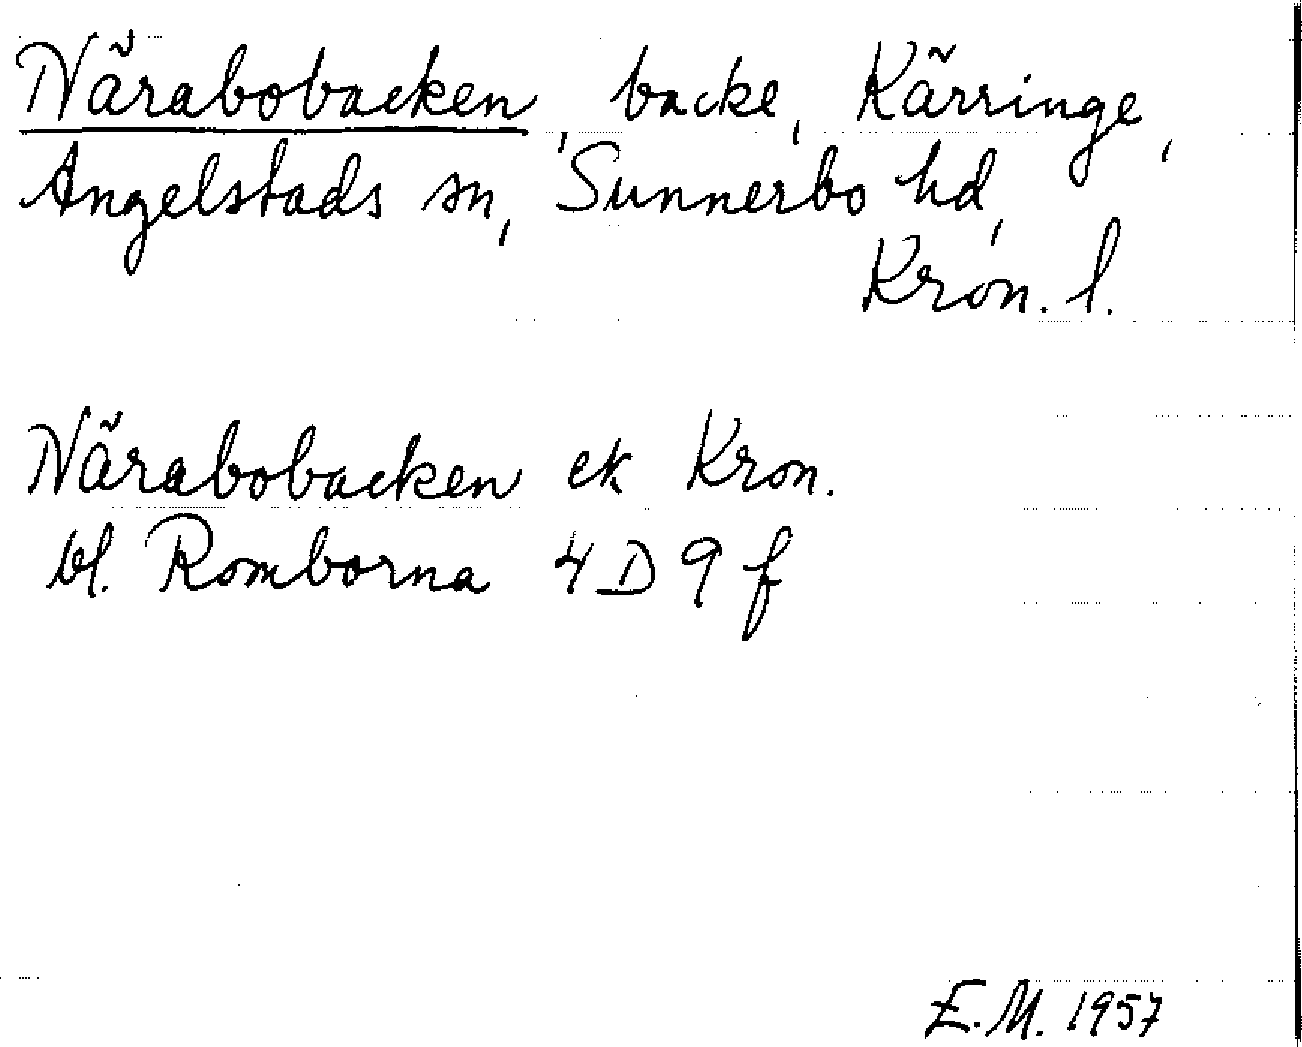 Närabobacken, backe, Kärringe,
Angelstads sn, Sunnerbo hd,
Kron. l.
Närabobacken ek Kron.
bl. Romborna 4D9f
E.M. 1957